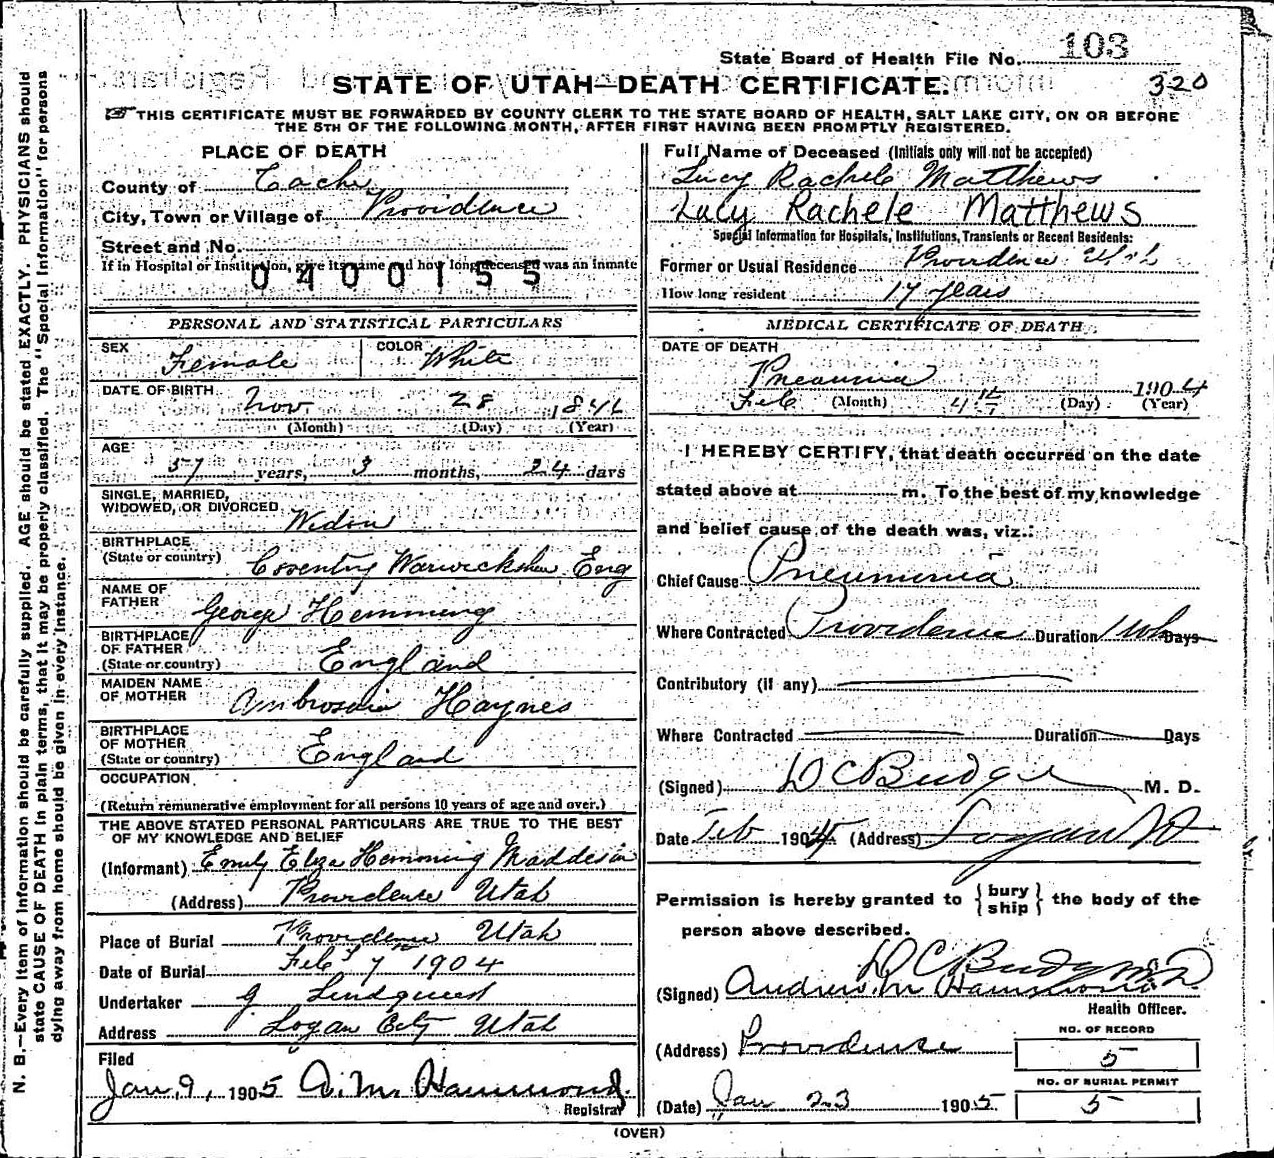 State Board of Health File No. 103
320
STATE OF UTAH—DEATH CERTIFICATE.
THIS CERTIFICATE MUST BE FORWARDED BY COUNTY CLERK TO THE STATE BOARD OF HEALTH, SALT LAKE CITY, ON OR BEFORE
THE 5TH OF THE FOLLOWING MONTH, AFTER FIRST HAVING BEEN PROMPTLY REGISTERED.
N. B.—Every item of information should be carefully supplied. AGE should be stated EXACTLY. PHYSICIANS should
state CAUSE OF DEATH in plain terms, that it may be properly classified. The "Special Information" for persons
dying away from home should be given in every instance.
PLACE OF DEATH
County of Cache
City, Town or Village of Providence
Street and No.
If in Hospital or Institution, give its name and how long deceased was an inmate
0400155
PERSONAL AND STATISTICAL PARTICULARS
SEX Female COLOR White
DATE OF BIRTH Nov 28 1846
(Month) (Day) (Year)
AGE
57 years, 3 months, 24 days
SINGLE, MARRIED,
WIDOWED, OR DIVORCED Widow
BIRTHPLACE
(State or country) Coventry Warwickshire Eng
NAME OF
FATHER George Hemming
BIRTHPLACE
OF FATHER
(State or country) England
MAIDEN NAME
OF MOTHER Ambrosia Haynes
BIRTHPLACE
OF MOTHER
(State or country) England
OCCUPATION
(Return remunerative employment for all persons 10 years of age and over.)
THE ABOVE STATED PERSONAL PARTICULARS ARE TRUE TO THE BEST
OF MY KNOWLEDGE AND BELIEF
(Informant) Emily Eliza Hemming Maddison
(Address) Providence Utah
Place of Burial Providence Utah
Date of Burial Feb 7th 1904
Undertaker J. Lindquist
Address Logan City Utah
Filed
Jan, 9, 1905 A. M. Hammond
Registrar
Full Name of Deceased (Initials only will not be accepted)
Lucy Rachele Matthews
Lucy Rachele Matthews
Special Information for Hospitals, Institutions, Transients or Recent Residents:
Former or Usual Residence Providence Utah
How long resident 17 years
MEDICAL CERTIFICATE OF DEATH
DATE OF DEATH
Pneaumia
Feb 4th 1904
(Month) (Day) (Year)
I HEREBY CERTIFY, that death occurred on the date
stated above at m. To the best of my knowledge
and belief cause of the death was, viz.:
Chief Cause Pneumonia
Where Contracted Providence Duration 1 wk Days
Contributory (if any)
Where Contracted Duration Days
(Signed) D C Budge M. D.
Date Feb 1904 (Address) Logan Ut
Permission is hereby granted to {bury ship} the body of the
person above described.
D C Budge M.D.
(Signed) Andrew M Hammond
Health Officer.
(Address) Providence
NO. OF RECORD
5
NO. OF BURIAL PERMIT
5
(Date) Jan 23 1905
(OVER)